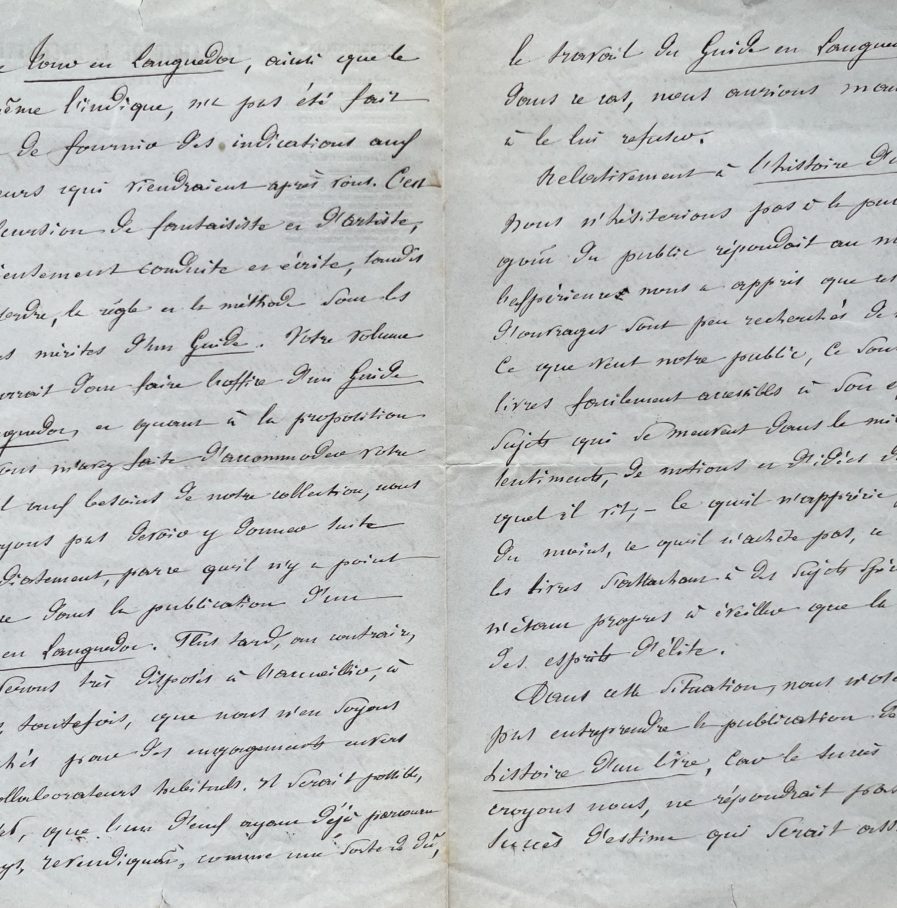 Tour en Languedoc, ainsi que le
même l'indique, n'a pas été fait
de fournir des indications aux
eurs qui viendraient après vous. C'est
cursion de fantaisiste et d'artiste,
conduite et écrite, tandis
ordre, la règle et la méthode sont les
mérites d'un Guide. Votre volume
rrait donc faire l'office d'un Guide
nguedoc, et quant à la proposition
ous m'avez faite d'accommoder votre
l aux besoins de notre collection, nous
oyons pas devoir y donner suite
diatement, parce qu'il n'y a point
ce dans la publication d'un
en Languedoc. Plus tard, au contraire,
serons très disposés à l'accueillir, à
, toutefois, que nous n'en soyons
chés par des engagements envers
ollaborateurs habituels. Il serait possible,
et, que l'un d'eux ayant déjà parcouru
ays, revendiquât, comme une sorte de dû,
le travail du Guide en Langued
dans ce cas, nous aurions mau
à le lui refuser.
Relativement à l'histoire d'u
nous n'hésiterions pas à la pub
goût du public répondait au m
L'expérience nous a appris que ces
d'ouvrages sont peu recherchés de n
Ce que veut notre public, ce son
livres facilement accessibles à son e
sujets qui se meuvent dans le mil
sentiments, de notions et d'idées d
quel il vit, – ce qu'il n'apprécie p
du moins, ce qu'il n'achète pas, ce
les livres s'attachant à des sujets spéc
n'étant propres à éveiller que la
des esprits d'élite.
Dans cette situation, nous n'oso
pas entreprendre la publication de
histoire d'un livre, car le succès
croyons nous, ne répondrait pas
succès d'estime qui serait ass